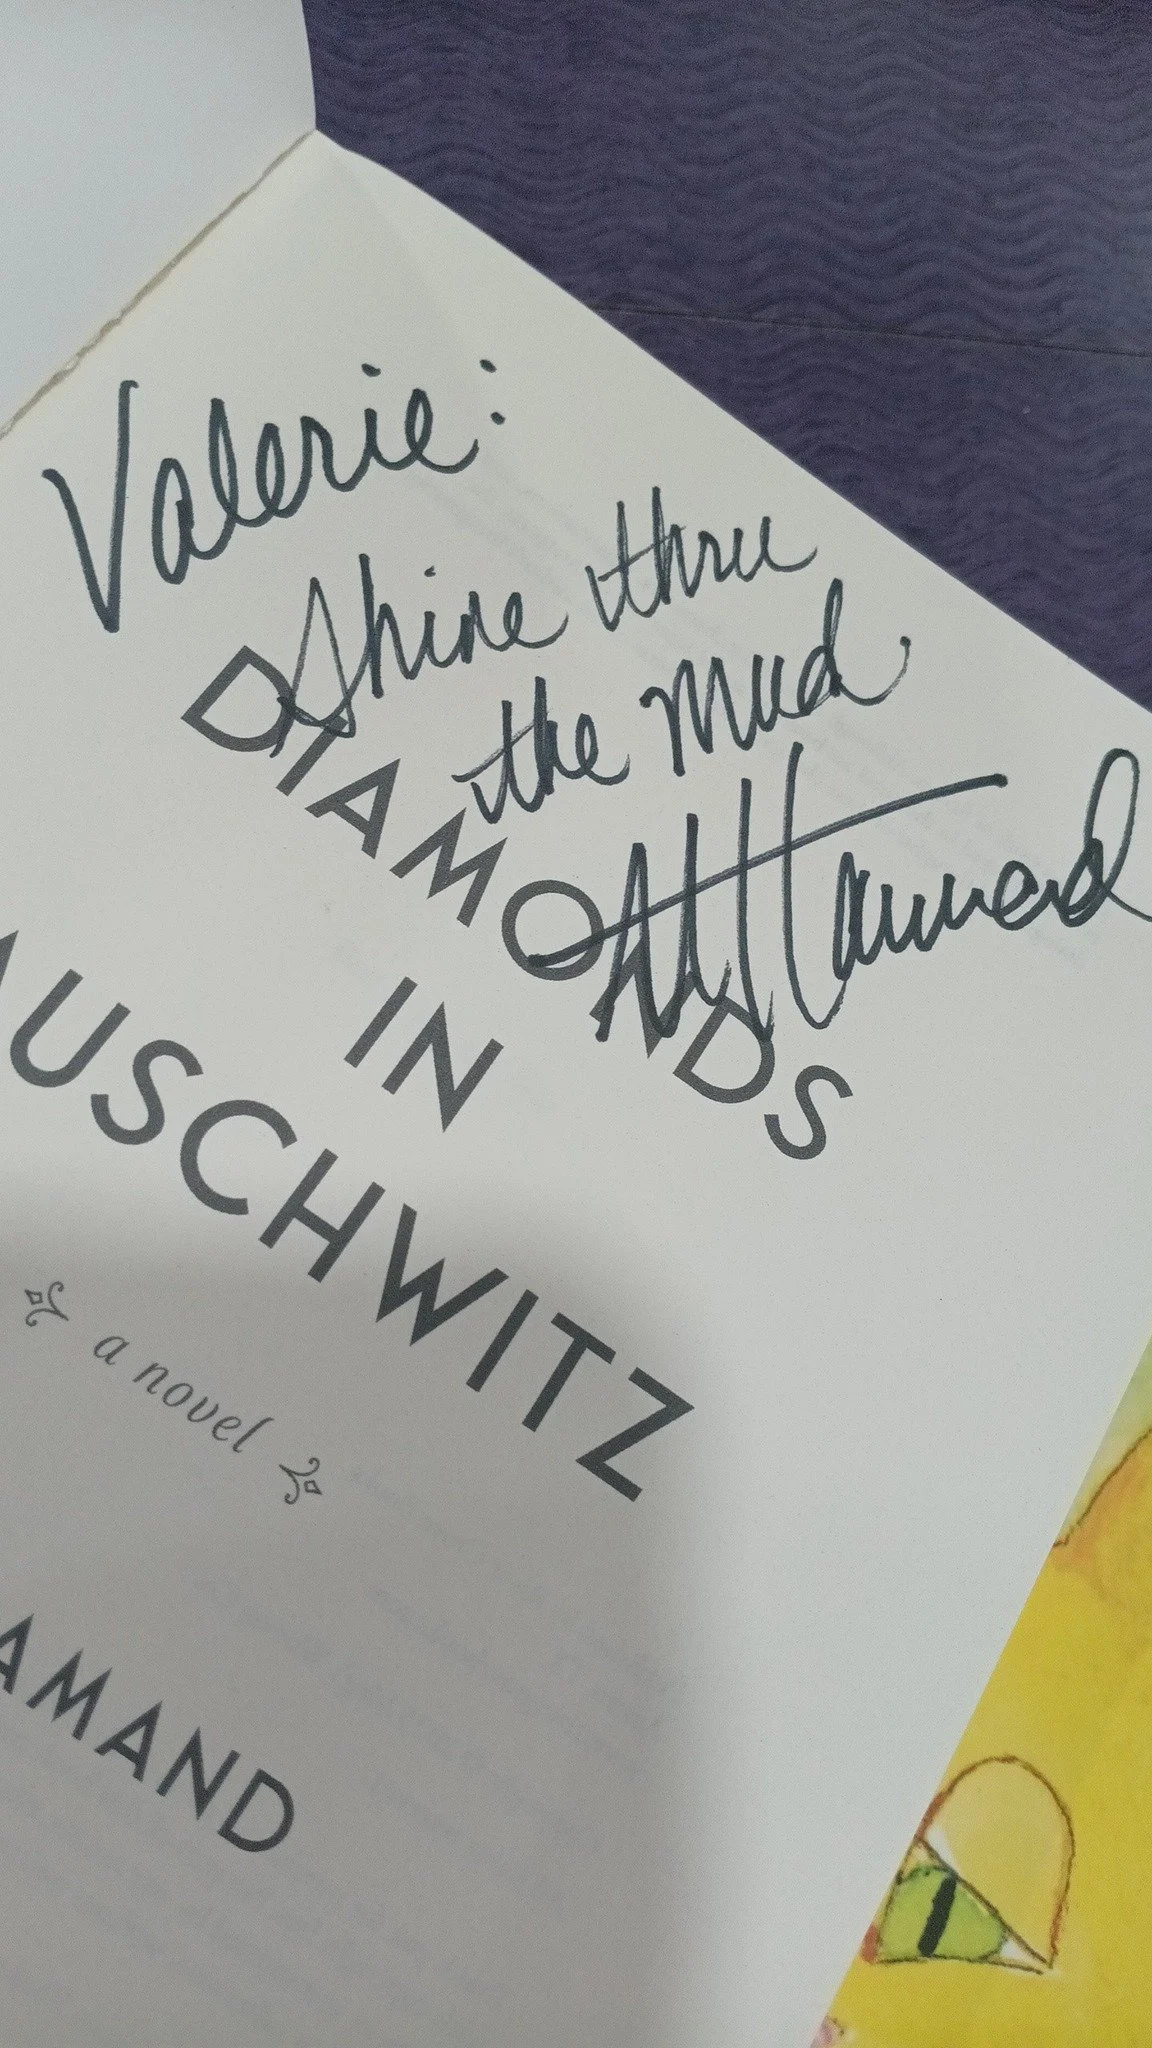 Valerie:
Shine thru
the mud
M Hamand
DIAMONDS
IN
AUSCHWITZ
a novel
AMAND